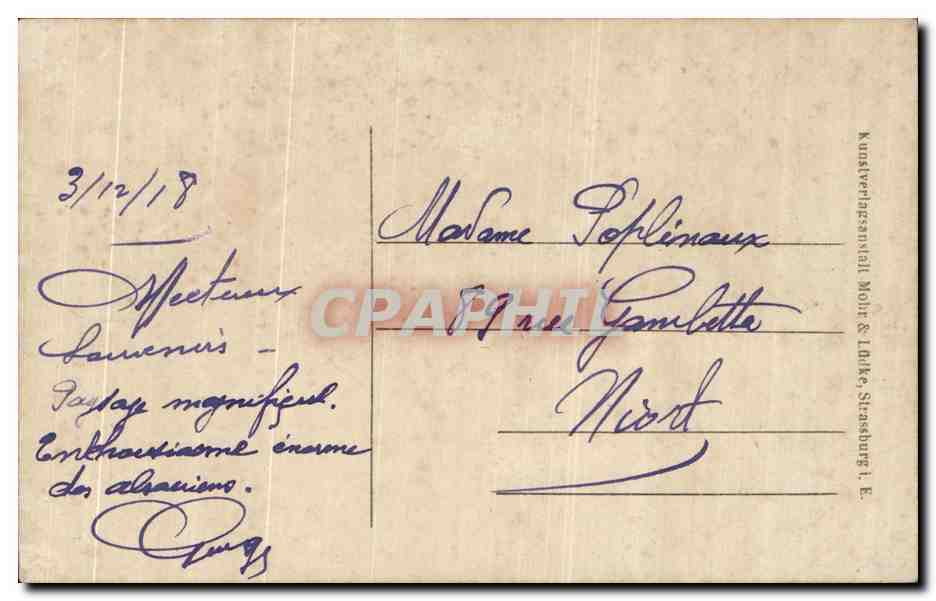 3/12/18
Affectueux
Souvenirs -
Paysage magnifique.
Enthousiasme énorme
des alsaciens.
Madame Poplineaux
89 rue Gambetta
Niort
Kunstverlagsanstalt Mohr & Lüdke, Strassburg i. E.
CPAPHIL